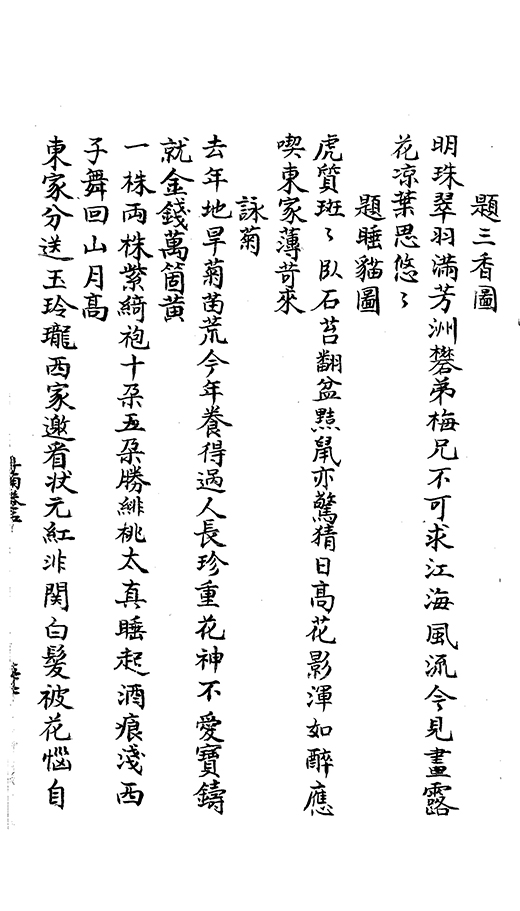 題三香圖
明珠翠羽滿芳洲礬弟梅兄不可求江海風流今見畫露
花凉葉思悠〻
題睡貓圖
虎質斑〻臥石苔翻盆黠鼠亦驚猜日高花影渾如醉應
喫東家薄荷來
詠菊
去年地旱菊苗荒今年養得過人長珍重花神不愛寶鑄
就金錢萬箇黄
一株両株紫綺袍十朶五朶勝緋桃太真睡起酒痕淺西
子舞回山月高
東家分送玉玲瓏西家邀看状元紅非関白髮被花惱自